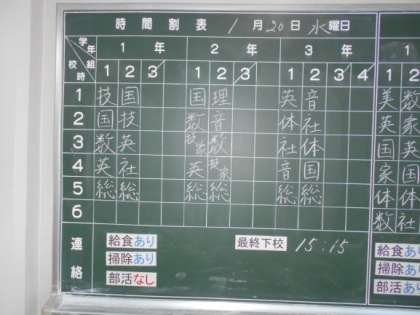 時間割表 1月20日水曜日
学年 組 校時 1年 2年 3年
1 2 3 1 2 3 1 2 3 4
1 技 国 国 理 英 音 美 数
2 国 技 数 音 体 社 英 家
3 数 英 数 社 体 国 英
4 英 社 英 音 国 家 国
5 総 総 総 総 総 総 体 体
6 数 社
連絡
給食あり 最終下校 15:15 給食あ
掃除あり 掃除あ
部活なし 部活あ